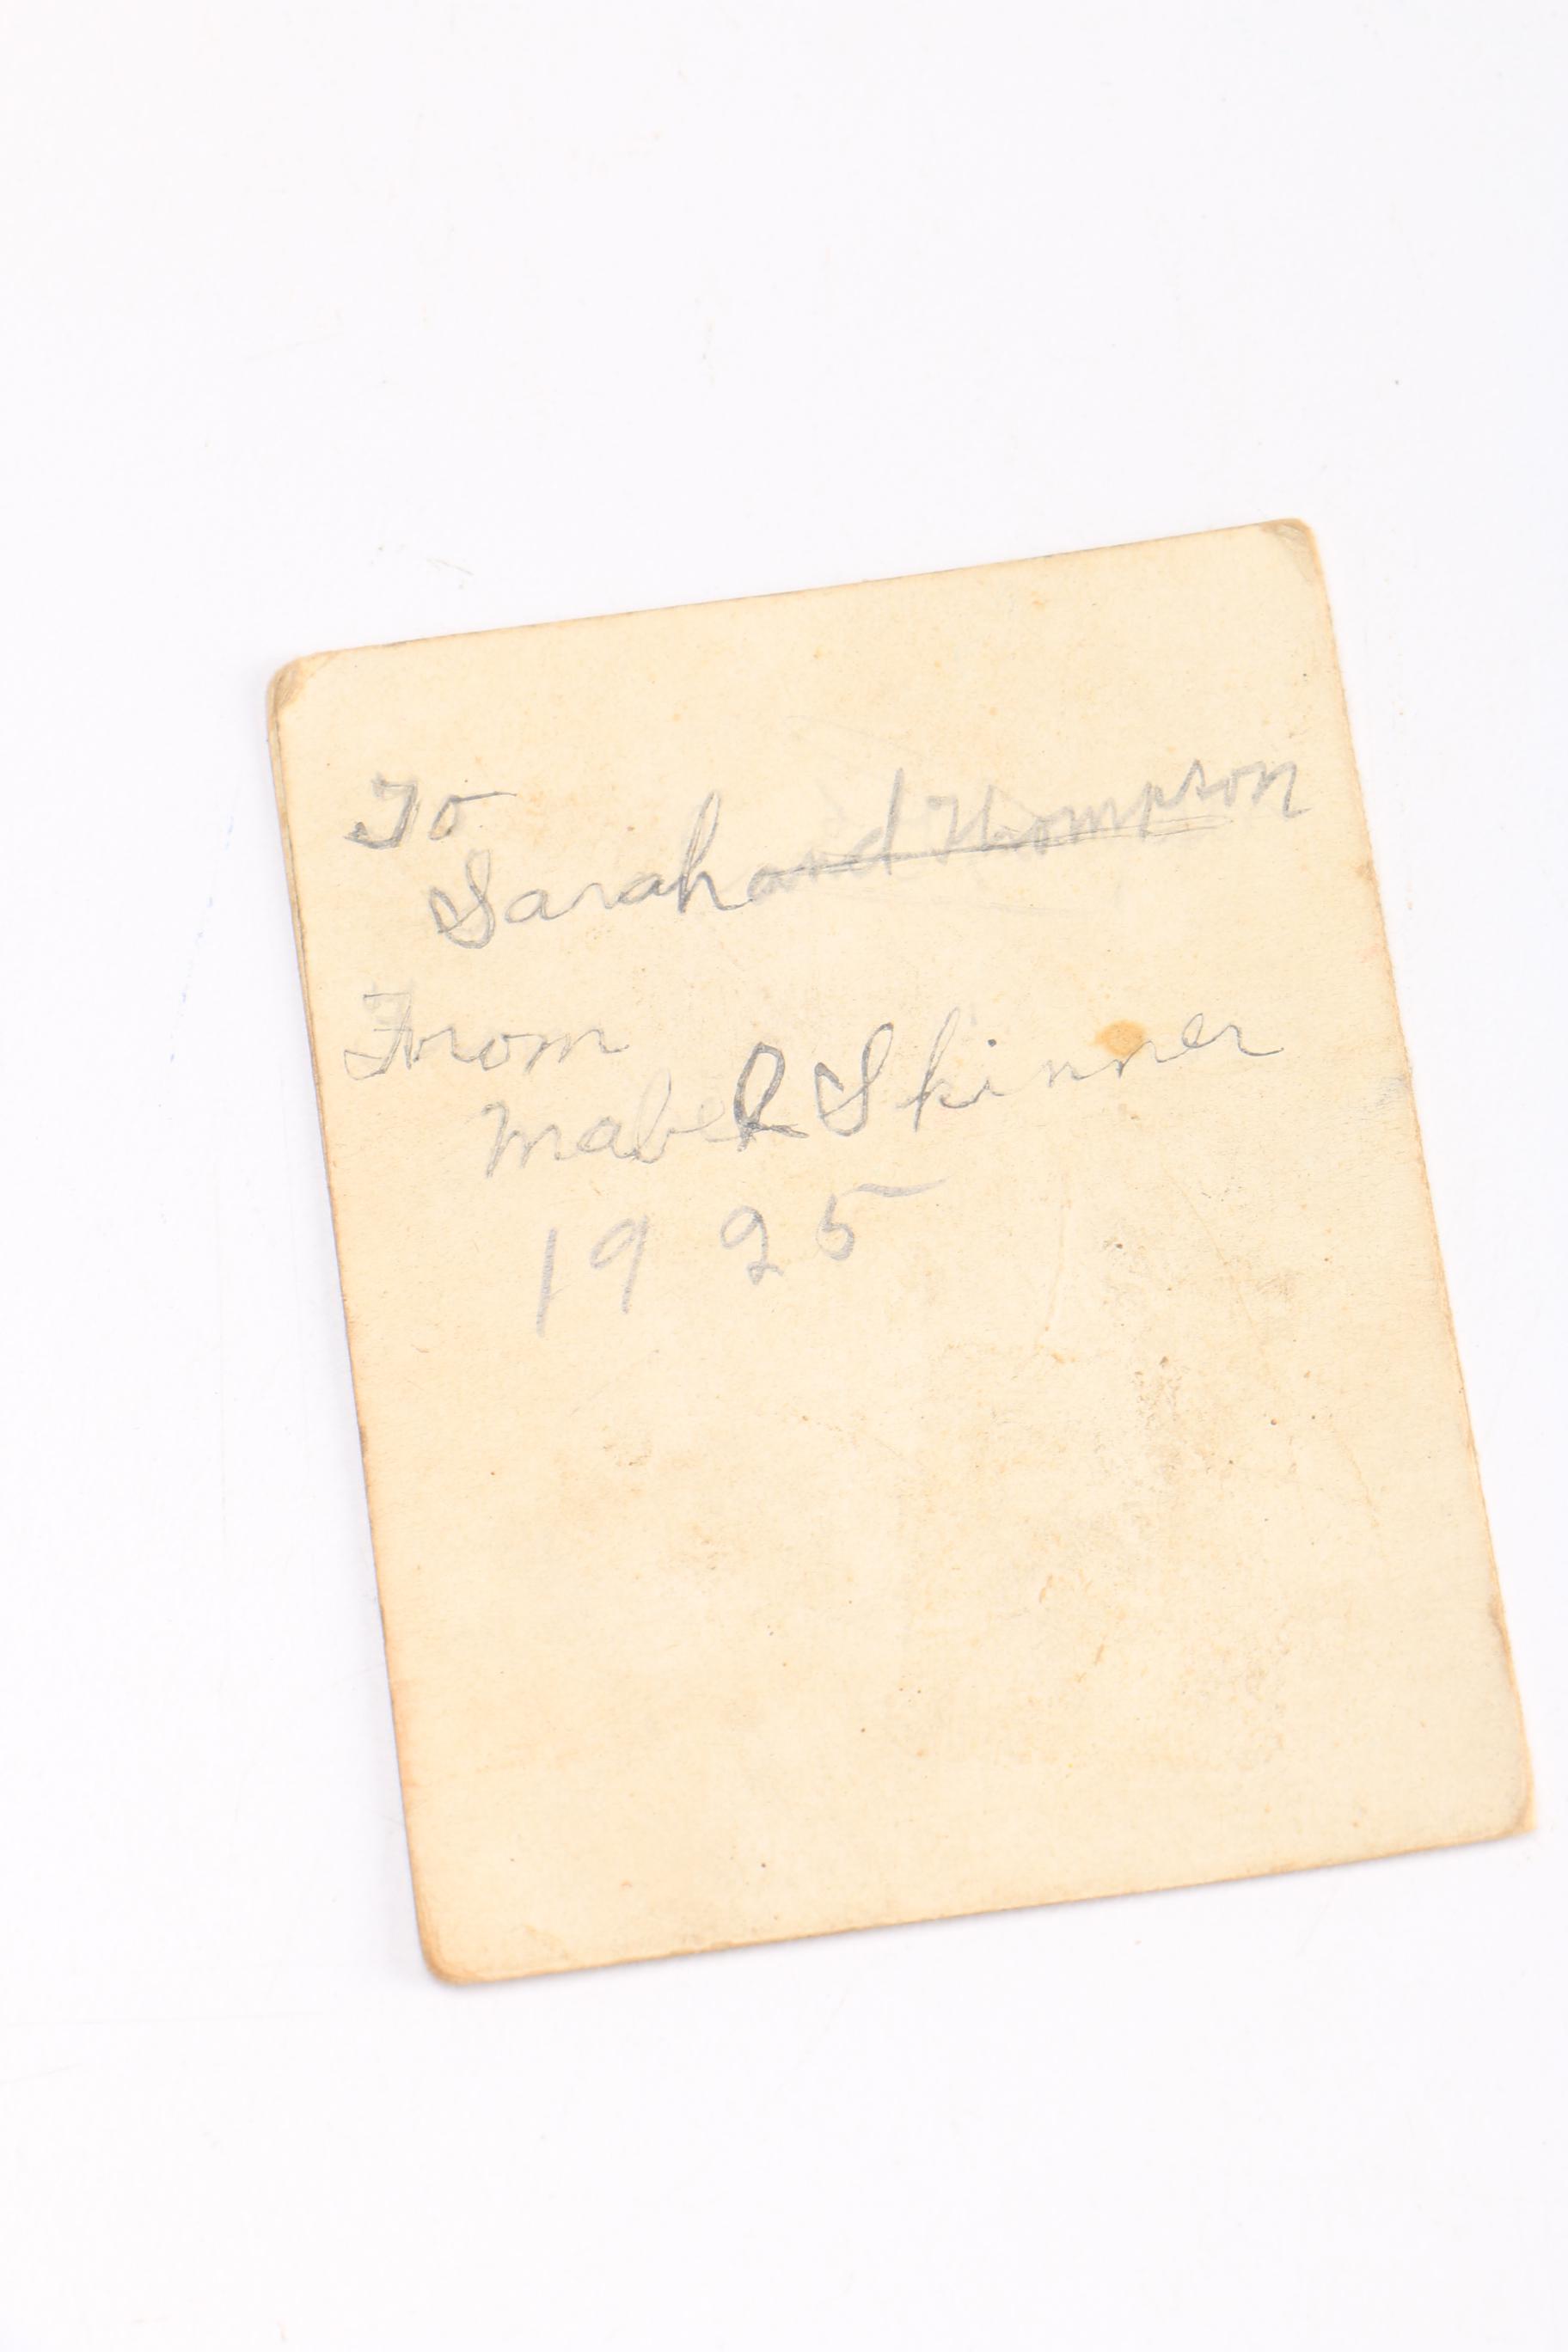 To
Sarah and Thompson
From
Mabel Skinner
1925